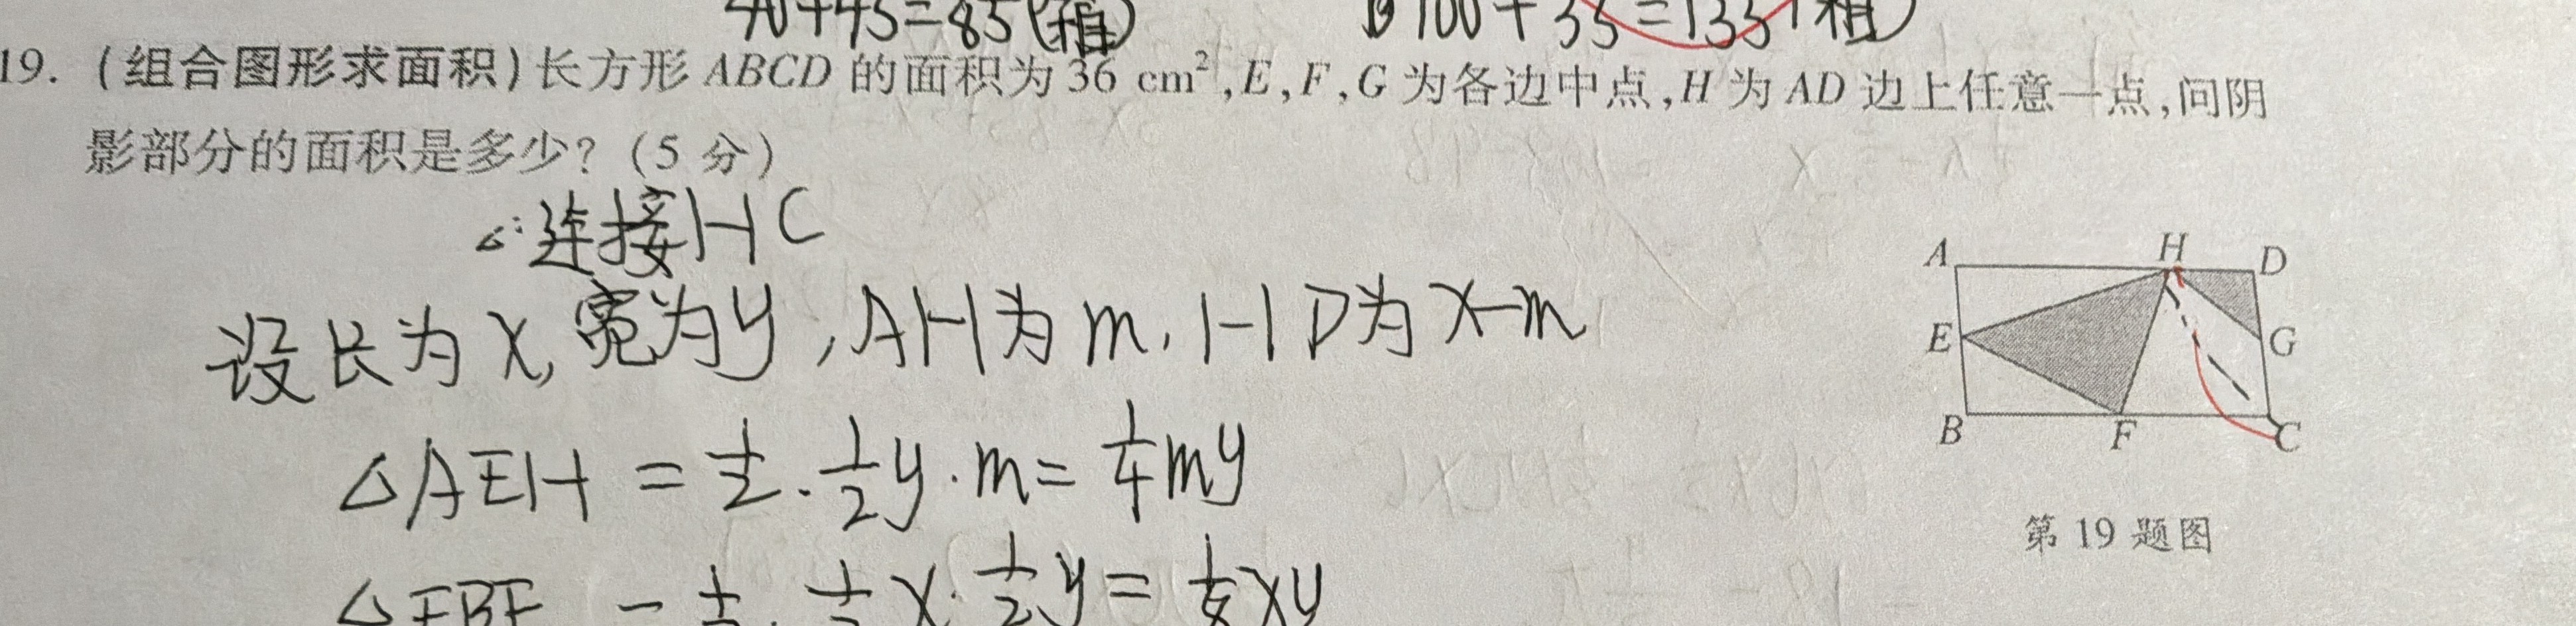 40+45=85(箱) 100+35=135(箱)
19. (组合图形求面积)长方形 ABCD 的面积为 36 cm²,E,F,G 为各边中点,H 为 AD 边上任意一点,问阴
影部分的面积是多少?(5 分)
连接HC
设长为x,宽为y,AH为m,HD为x-m
△AEH = 1/2·1/2y·m= 1/4my
△EBF = 1/2·1/2x·1/2y= 1/8xy
A H D
E G
B F C
第 19 题图